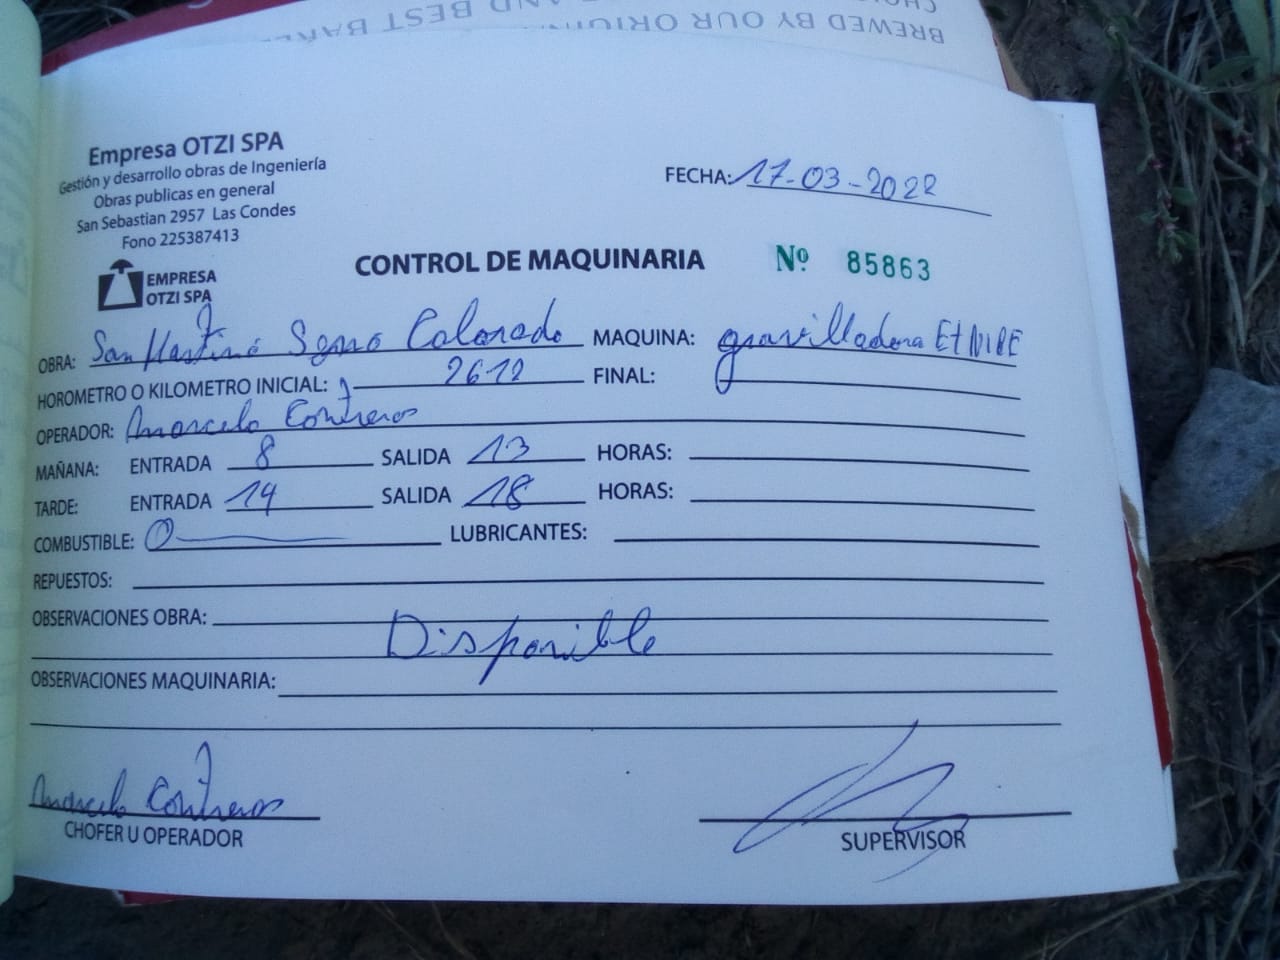 BREWED BY OUR ORIGIN AND BEST BAR
Empresa OTZI SPA
Gestión y desarrollo obras de Ingeniería
Obras publicas en general
San Sebastian 2957 Las Condes
Fono 225387413
EMPRESA
OTZI SPA
FECHA: 17-03-2022
CONTROL DE MAQUINARIA Nº 85863
OBRA: San Martino Colorado MAQUINA: gravilladora
HOROMETRO O KILOMETRO INICIAL: 2612 FINAL:
OPERADOR: Marcelo Contreras
MAÑANA: ENTRADA 8 SALIDA 13 HORAS:
TARDE: ENTRADA 14 SALIDA 18 HORAS:
COMBUSTIBLE: 0 LUBRICANTES:
REPUESTOS:
OBSERVACIONES OBRA:
Disponible
OBSERVACIONES MAQUINARIA:
Marcelo Contreras
CHOFER U OPERADOR
SUPERVISOR